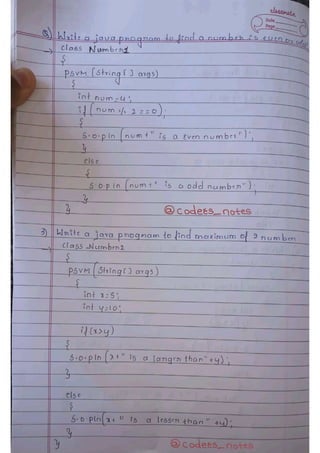 classmate
Date
Page
2) Write a java program to find a number is even or
→ class Number1
{
PSVM (String[] args)
{
int num=4;
if (num % 2==0);
{
S.o.p ln (num+" is a even number.");
}
else
{
S.o.p ln (num+" is a odd number");
}
}
@coders_notes
3) Write a Java program to find maximum of 2 number
→ class Number2
{
PSVM (String[] args)
{
int x=5;
int y=10;
if(x>y)
{
S.o.pln (x+" is a larger than"+y);
}
else
{
S.o pln(x+" is a lesser than"+y);
}
}
@coders_notes